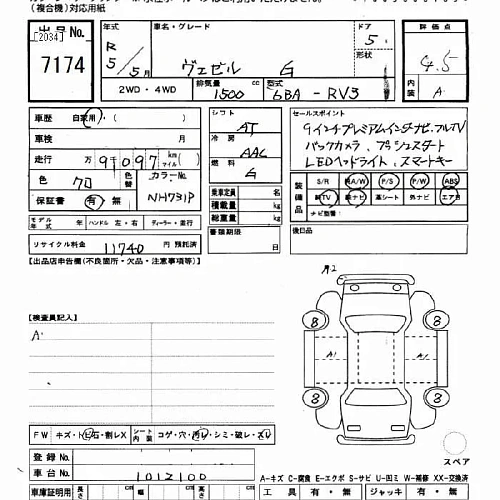 (複合機)対応用紙
出品No.
[2034]
7174
年式
R
5/5月
車名・グレード
ヴェゼル G
ドア
5
形状
評価点
4.5
内装 A
2WD・4WD
排気量 1500 cc
型式 6BA-RV3
車歴 自家用
車検 月
走行 9万1097 km マイル
色 クロ
色替
カラーNo. NH731P
保証書 有・無
シフト AT
冷房 AAC
燃料 G
乗車定員 名
積載量 kg
総重量 kg
セールスポイント
9インチプレミアムインターナビ.フルTV
バックカメラ、プッシュスタート
LEDヘッドライト、スマートキー
装備品
S/R A/W P/S P/W ABS
TV ナビ 革シート 外ナビ エアB
ナビ型番( )
モデル年式 年 ハンドル 左・右 ディーラー・並行
書類期限 日
後日品
リサイクル料金 11740 円 預託済
[出品店申告欄(不良箇所・欠品・注意事項等)]
[検査員記入]
A
8
8
8
8
A1
A1
FW キズ・トビ石・割レX
シート内装 コゲ・穴・汚レ・シミ・破レ・スレ
スペア
登録No.
車台No. 1012100
A-キズ C-腐食 E-エクボ S-サビ U-凹ミ W-補修 XX-交換済
車庫証明用 長さ cm 幅 cm 高さ cm
工具 有・無 ジャッキ 有・無